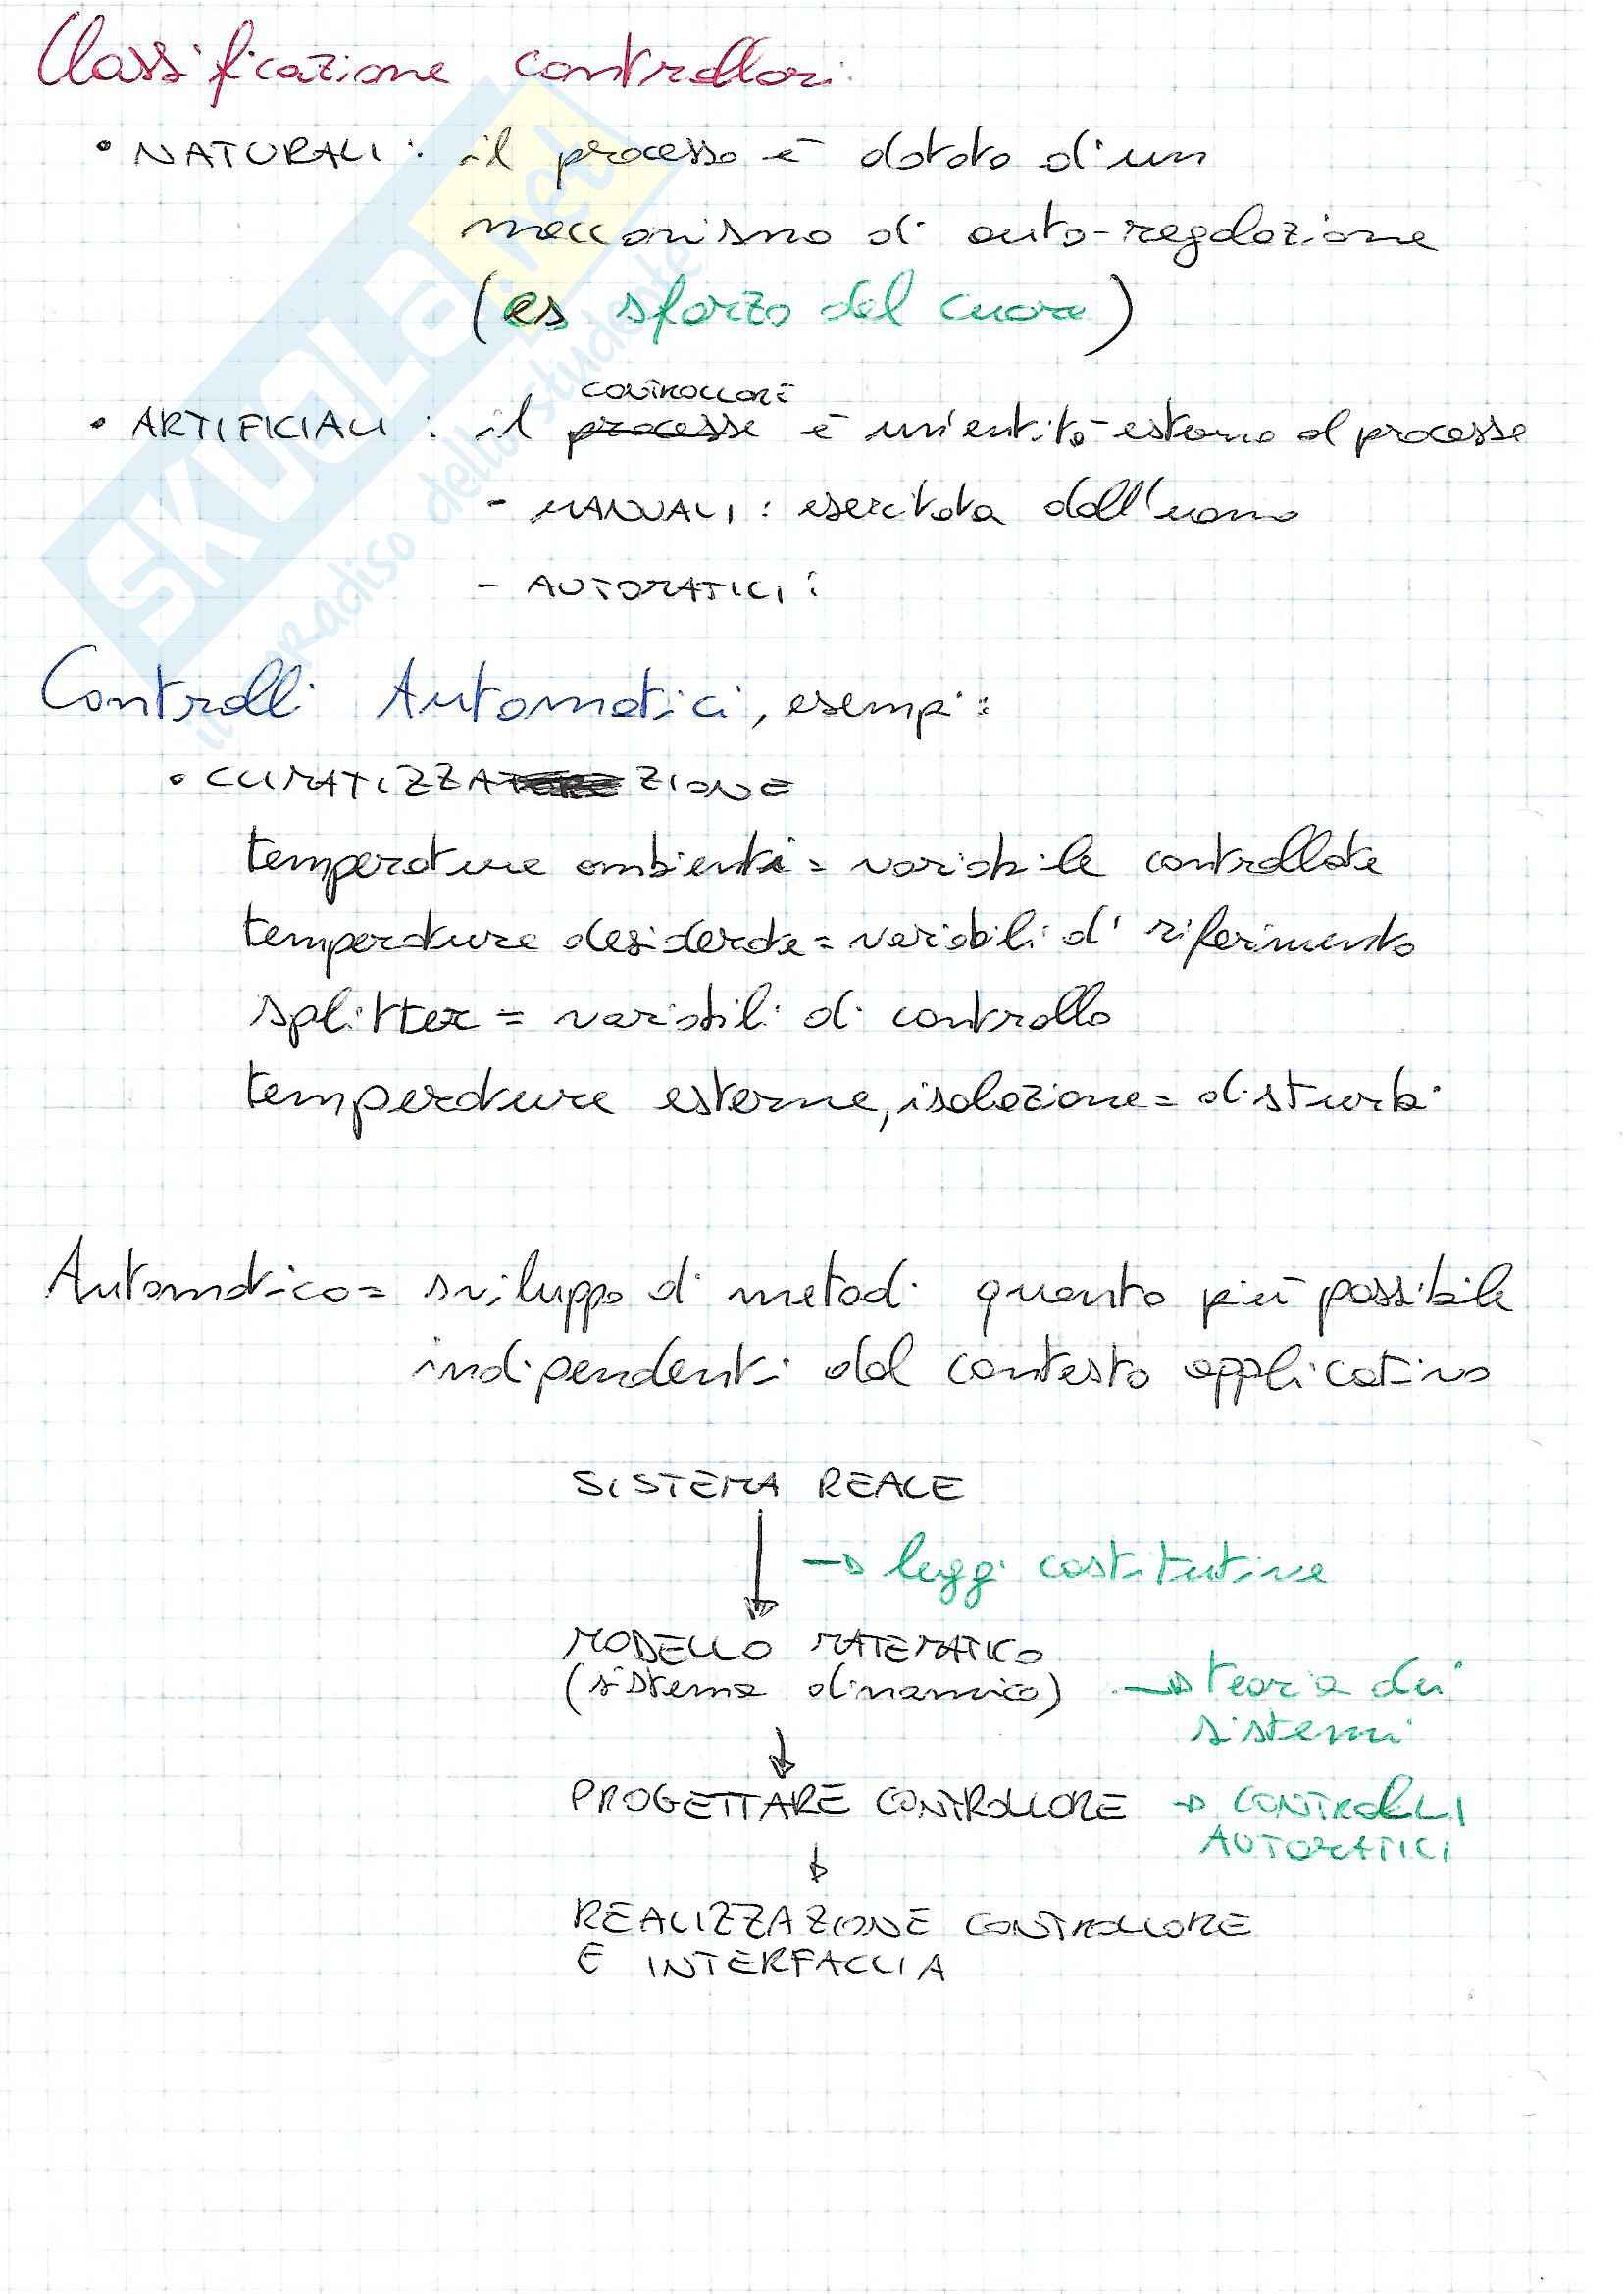 Classificazione controllori
• NATURALI : il processo è dotato d'un
meccanismo di auto-regolazione
(es sforzo del cuore)
controllore
• ARTIFICIALI : il processo è un'entità esterna al processo
- MANUALI : esercitata dall'uomo
- AUTOMATICI :
Controlli Automatici, esempi:
• CLIMATIZZAZIONE
temperature ambienti = variabile controllate
temperature desiderate = variabili di riferimento
splitter = variabili di controllo
temperature esterne, isolazione = disturbi
Automatico = sviluppo di metodi quanto più possibile
indipendenti dal contesto applicativo
SISTEMA REALE
→ leggi costitutive
MODELLO MATEMATICO
(sistema dinamico) → teoria dei
sistemi
↓
PROGETTARE CONTROLLORE → CONTROLLI
AUTOMATICI
↓
REALIZZAZIONE CONTROLLORE
E INTERFACCIA
SKUOLA.net
il paradiso dello studente